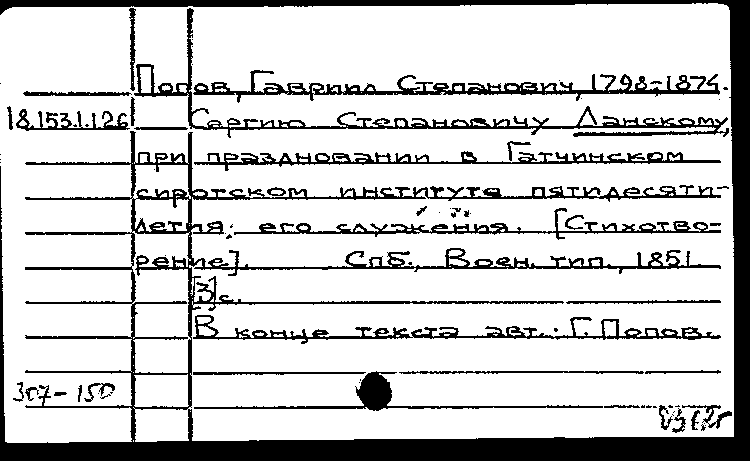 Попов, Гавриил Степанович, 1798-1874.
18.153.1.126 Сергию Степановичу Ланскому,
при праздновании в Гатчинском
сиротском институте пятидесяти-
летия его служения. [Стихотво-
рение]. Спб., Воен. тип., 1851.
[3] с.
В конце текста авт.: Г. Попов.
307-150